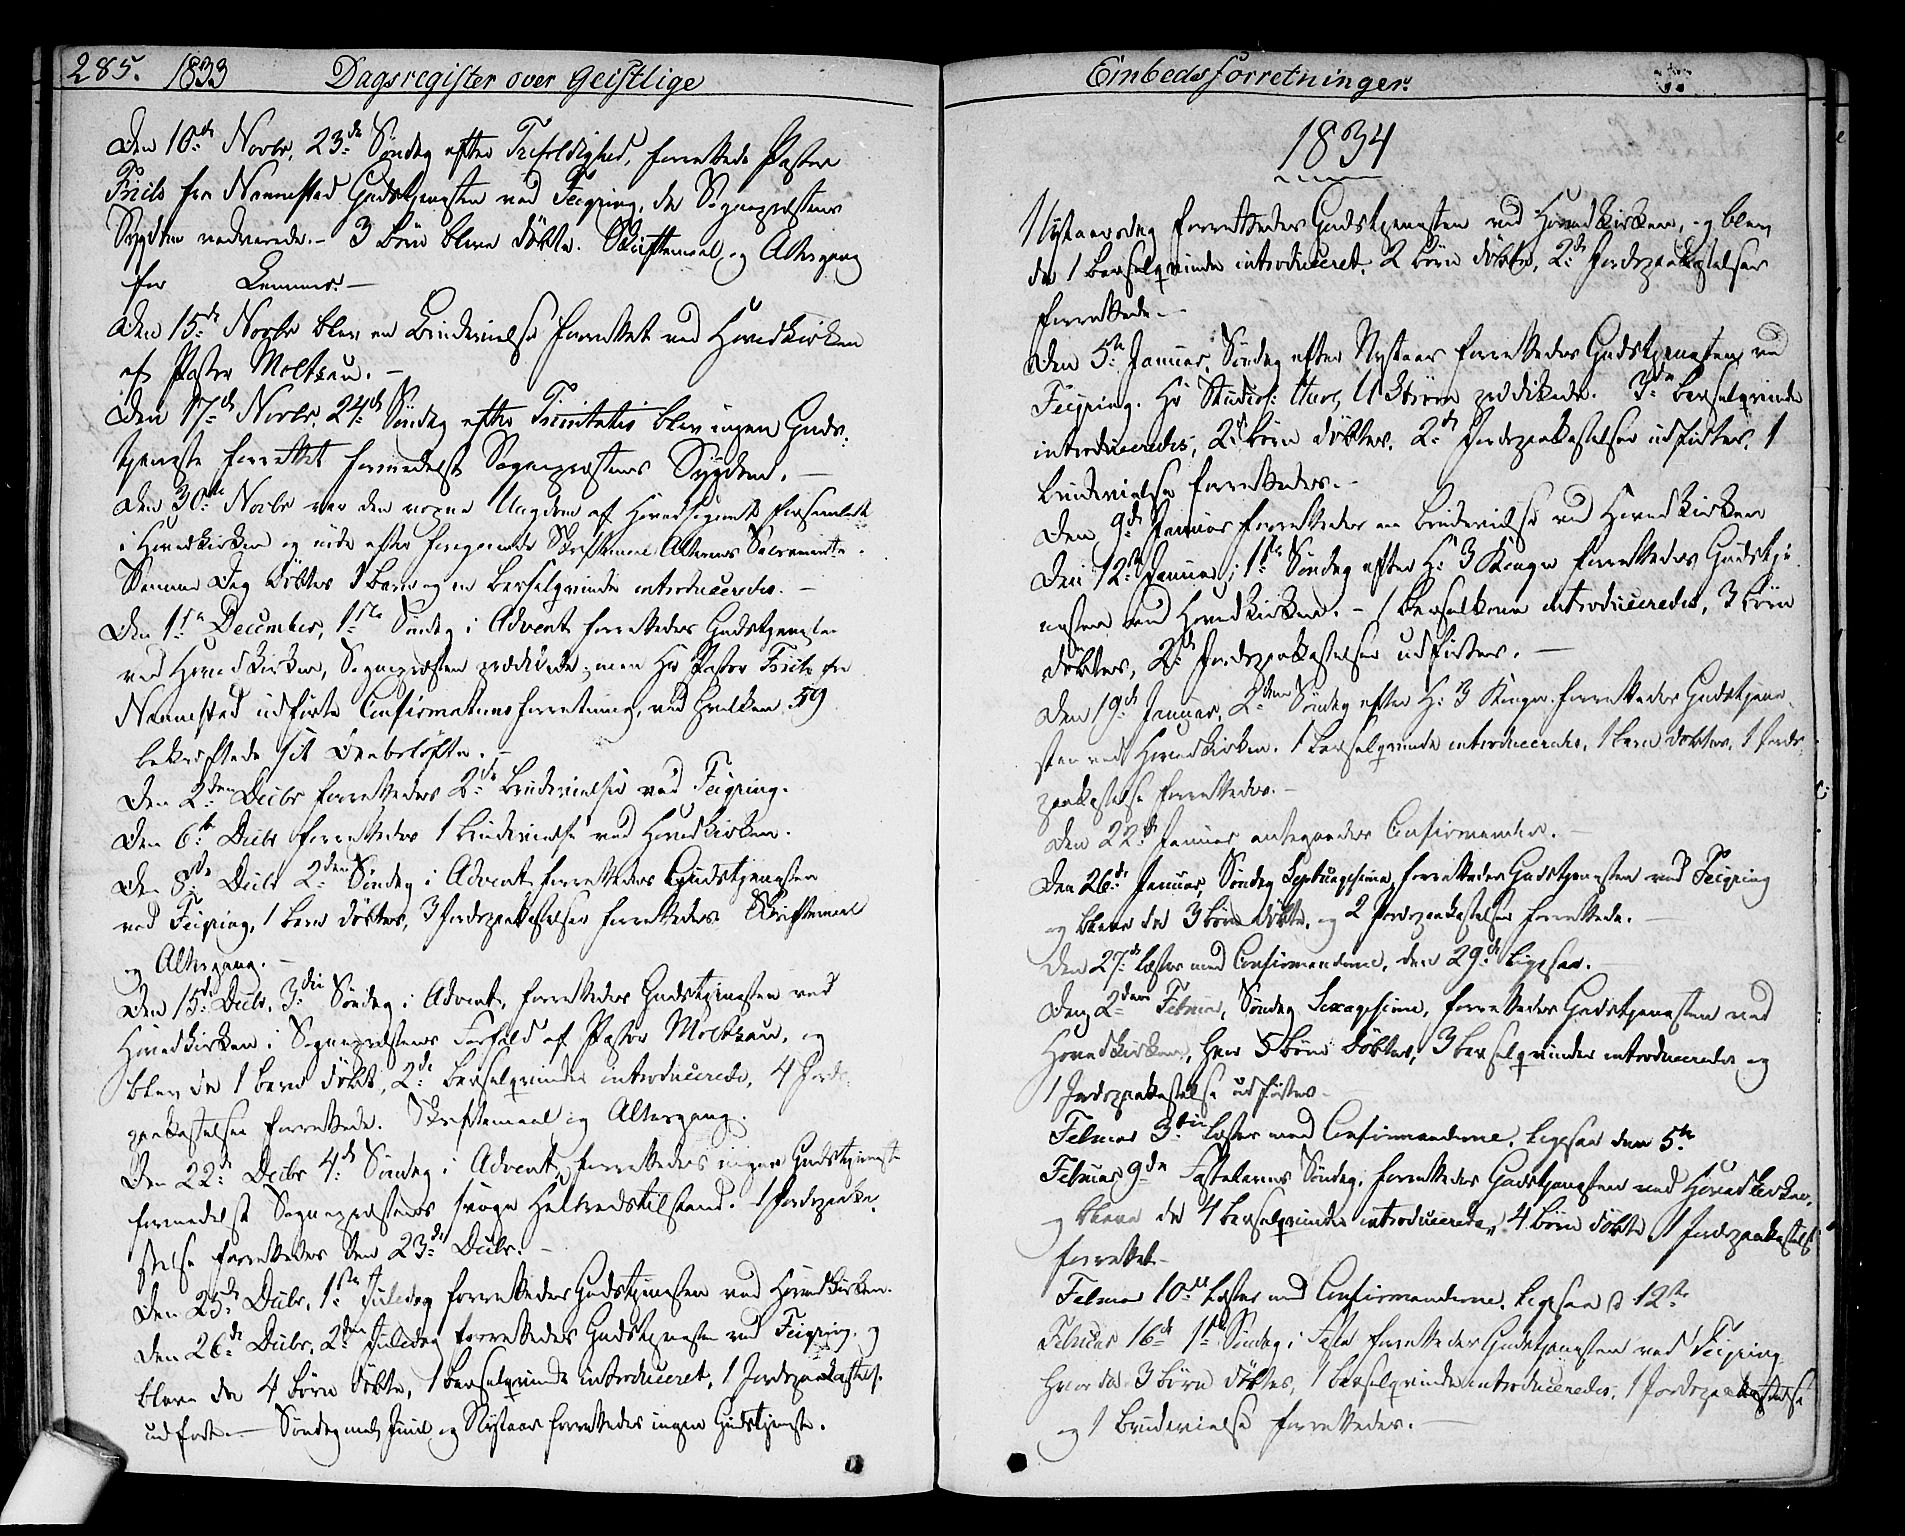 285. 1833 Dagsregister over Geistlige
Den 10de Novbr, 23de Søndag efter Trefoldighed, forrettede Pastor
Friis fra Nannestad Gudstjenesten ved Feiring, da Sognepræstens
Sygdom vedvarede.- 3 børn bleve døbte. Skriftemaal og Altergang
for Lemmer.-
Den 15de Novbr blev en Brudevielse forrettet ved Hovedkirken
af Pastor Moltzau.-
Den 17de Novbr, 24de Søndag efter Trinitatis blev ingen Guds-
tjeneste forrettet formedelst Sognepræstens Sygdom.-
Den 30te Novbr var den Ungdom af Hovedsognet forsamlet
i Hovedkirken og nøde efter foregaaende Skriftemaal Alterens Sacramente.
Samme Dag døbtes 1 barn og en barselqvinde introduceredes.-
Den 1ste December, 1ste Søndag i Advent forrettedes Gudstjenesten
ved Hovedkirken, Sognepræsten prædikede, men Hr Pastor Friis fra
Nannestad udførte Confirmationsforretning, ved hvilken 59
bekræftede sit Daabsløfte.-
Den 2den Decbr forrettedes 2de Brudevielser ved Feiring.
Den 6te Decbr forrettedes 1 Brudevielse ved Hovedkirken.
Den 8de Decbr 2den Søndag i Advent forrettedes Gudstjenesten
ved Feiring, 1 barn døbtes, 3 Jordspaakastelser forrettedes. Skriftemaal
og Altergang.-
Den 15de Decbr, 3die Søndag i Advent, forrettedes Gudstjenesten ved
Hovedkirken i Sognepræstens Forfald af Pastor Moltzau, og
blev der 1 barn døbt, 2de barselqvinder introducerede, 4 Jords-
paakastelser forrettede. Skriftemaal og Altergang.
Den 22de Decbr 4de Søndag i Advent, forrettedes ingen Gudstjeneste
formedelst Sognepræstens svage Helbredstilstand. 1 Jordspaaka-
stelse forrettedes den 23de Decbr.-
Den 25de Decbr, 1ste Juledag forrettedes Gudstjenesten ved Hovedkirken.
Den 26de Decbr, 2den Juledag forrettedes Gudstjenesten ved Feiring, og
bleve der 4 børn døbte, 1 barselqvinde introduceret, 1 Jordspaakastels.
udført.- Søndag mell. Juul og Nytaar forrettedes ingen Gudstjeneste.
Embedsforretninger.
1834
Nytaarsdag forrettedes Gudstjenesten ved Hovedkirken, og blev
der 1 barselqvinde introduceret, 2 børn døbte, 2de Jordspaakastelser
forrettede.-
Den 5te Januar, Søndag efter Nytaar forrettedes Gudstjenesten ved
Feiring. Hr Studios: prædikede. 3de barselqvinder
introduceredes, 2de børn døbtes, 2de Jordspaakastelser udførtes, 1
Brudevielse forrettedes.-
Den 9de Januar forrettedes en Brudevielse ved Hovedkirken
Den 12te Januar, 1ste Søndag efter H: 3 Konger forrettedes Gudstje-
nesten ved Hovedkirken.- 1 barselkone introduceredes, 3 børn
døbtes, 2de Jordspaakastelser udførtes.-
Den 19de Januar, 2den Søndag efter H: 3 Konger forrettedes Gudstjene-
sten ved Hovedkirken. 1 barselqvinde introduceredes, 1 barn døbtes, 1 Jords-
paakastelse forrettedes.-
Den 22de Januar antegnedes Confirmander.-
Den 26de Januar, Søndag Septuagesima, forrettedes Gudstjenesten ved Feiring
og bleve der 3 børn døbte, og 2 Jordspaakastelser forrettede.-
Den 27de læstes med Confirmanderne, den 29de ligesaa.-
Den 2den Februar, Søndag Sexagesima, forrettedes Gudstjenesten ved
Hovedkirken, hvor 5 børn døbtes, 3 barselqvinder introduceredes og
1 Jordspaakastelse udførtes.-
Februar 3die læstes med Confirmanderne, ligesaa den 5te
Februar 9de Fastelavns Søndag, forrettedes Gudstjenesten ved Hovedkirken,
og bleve der 4 barselqvinder introducerede, 4 børn døbte 1 Jordspaakastelse
forrettet.-
Februar 10de læstes med Confirmanderne, ligesaa d 12te
Februar 16de 1ste Søndag i Faste forrettedes Gudstjenesten ved Feiring
hvor der 3 børn døbtes, 1 barselqvinde introduceredes, 1 Jordspaakastelse
og 1 Brudevielse forrettedes.-